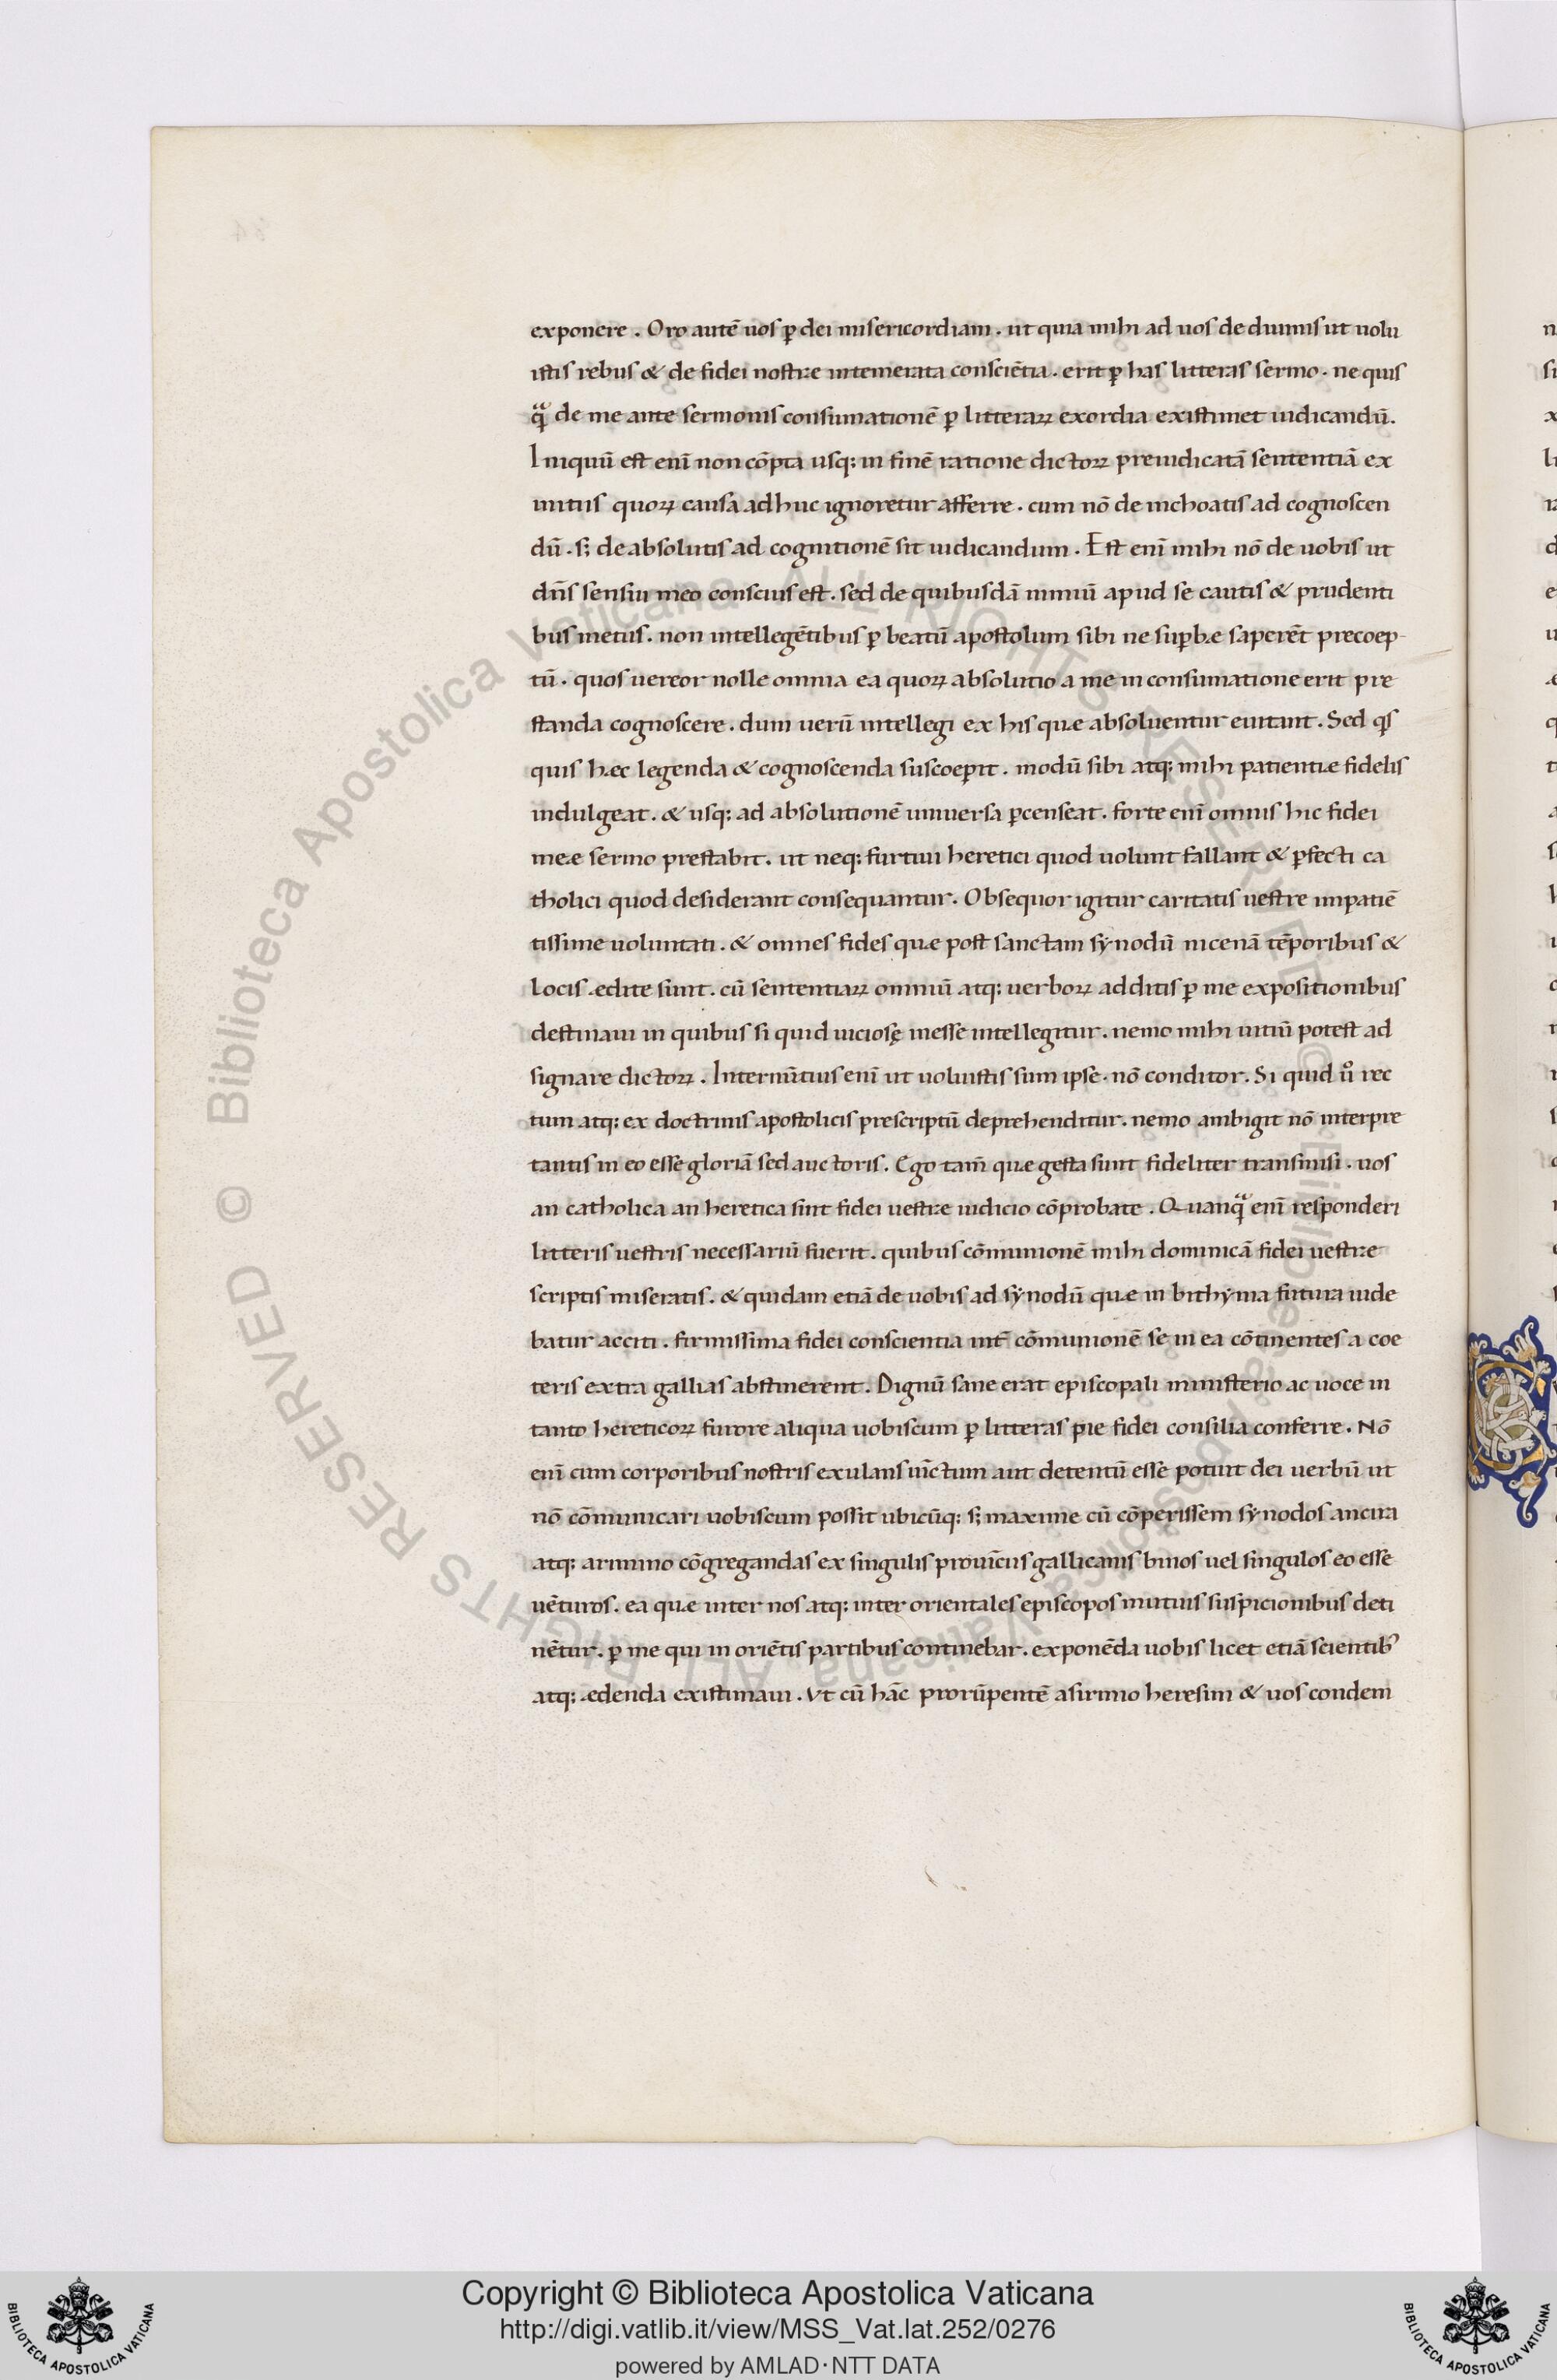 exponere . Oro autē uos ꝑ dei misericordiam . ut quia mihi ad uos de diuinis ut uolu
istis rebus & de fidei nostræ intemerata consciētia . erit ꝑ has litteras sermo . ne quis
qͣ̄ de me ante sermonis consumationē ꝑ litteraꝝ exordia existimet iudicandū.
Iniquū est enī non cōpta usq: in finē ratione dictoꝝ preiudicatā sententiā ex
initiis quoꝝ causa adhuc ignoretur afferre . cum nō de inchoatis ad cognoscen
dū . s; de absolutis ad cognitionē sit iudicandum . Est enī mihi nō de uobis ut
dn̄s sensui meo conscius est . sed de quibusdā nimiū apud se cautis & prudenti
bus metus . non intellegētibus ꝑ beatū apostolum sibi ne suꝑbæ saperēt precoep-
tū . quos uereor nolle omnia ea quoꝝ absolutio a me in consumatione erit pre
standa cognoscere . dum uerū intellegi ex his quæ absoluentur euitant . Sed qs̄
quis hæc legenda & cognoscenda suscoeꝑit . modū sibi atq: mihi patientiæ fidelis
indulgeat . & usq: ad absolutionē uniuersa ꝑcenseat . forte enī omnis hic fidei
meæ sermo prestabit . ut neq: furtiui heretici quod uolunt fallant & ꝑfecti ca
tholici quod desiderant consequantur . Obsequor igitur caritatis uestre impatiē
tissime uoluntati . & omnes fides quæ post sanctam sẏnodū nicenā tēporibus &
locis ædite sunt . cū sententiaꝝ omniū atq: uerboꝝ additis ꝑ me expositionibus
destinaui in quibus si quid uiciosę inesse intellegitur . nemo mihi uitiū potest ad
signare dictoꝝ . Internūtius enī ut uoluistis sum ipse . nō conditor . Si quid ūo rec
tum atq: ex doctrinis apostolicis prescriptū deprehenditur . nemo ambigit nō interpre
tantis in eo esse gloriā sed auctoris . Ego tam̄ quæ gesta sunt fideliter transmisi . uos
an catholica an heretica sint fidei uestræ iudicio cōprobate . Quanqͣ̄ enī responderi
litteris uestris necessariū fuerit . quibus cōmunionē mihi dominicā fidei uestræ
scriptis miseratis . & quidam etiā de uobis ad sẏnodū quæ in bithẏnia futura uide
batur acciti . firmissima fidei conscientia int̄ cōmunionē se in ea cōtinentes a coe
teris extra gallias abstinerent . Dignū sane erat episcopali ministerio ac uoce in
tanto hereticoꝝ furore aliqua uobiscum ꝑ litteras pie fidei consilia conferre . Nō
enī cum corporibus nostris exulans uīctum aut detentū esse potuit dei uerbū ut
nō cōmunicari uobiscum possit ubicūq: s; maxime cū cōperissem sẏnodos ancira
atq: arimino cōgregandas ex singulis prouīciis gallicanis binos uel singulos eo esse
uēturos . ea quæ inter nos atq: inter orientales episcopos mutuis suspicionibus deti
nētur . ꝑ me qui in oriētis partibus continebar . exponēda uobis licet etiā scientib᾿
atq: ædenda existimaui . Vt cū hāc prorūpentē a sirmio heresim & uos condem
Copyright © Biblioteca Apostolica Vaticana
http://digi.vatlib.it/view/MSS_Vat.lat.252/0276
powered by AMLAD·NTT DATA